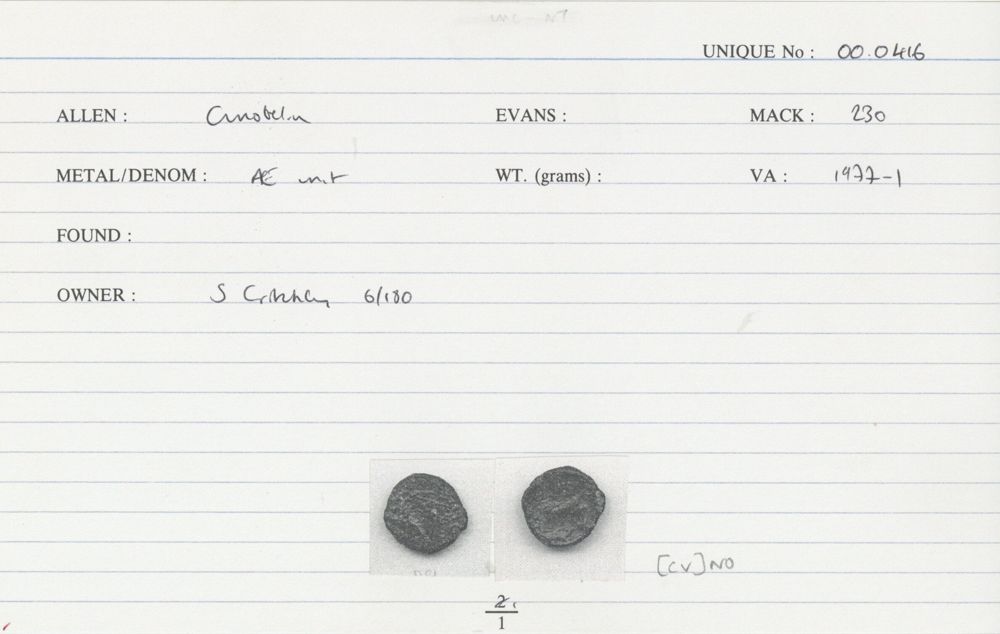 UNIQUE No : 00.0416
ALLEN : Cunobelin EVANS : MACK : 230
METAL/DENOM : Æ unit WT. (grams) : VA : 1977-1
FOUND :
OWNER : S 6/180
[CV]NO
2.
1